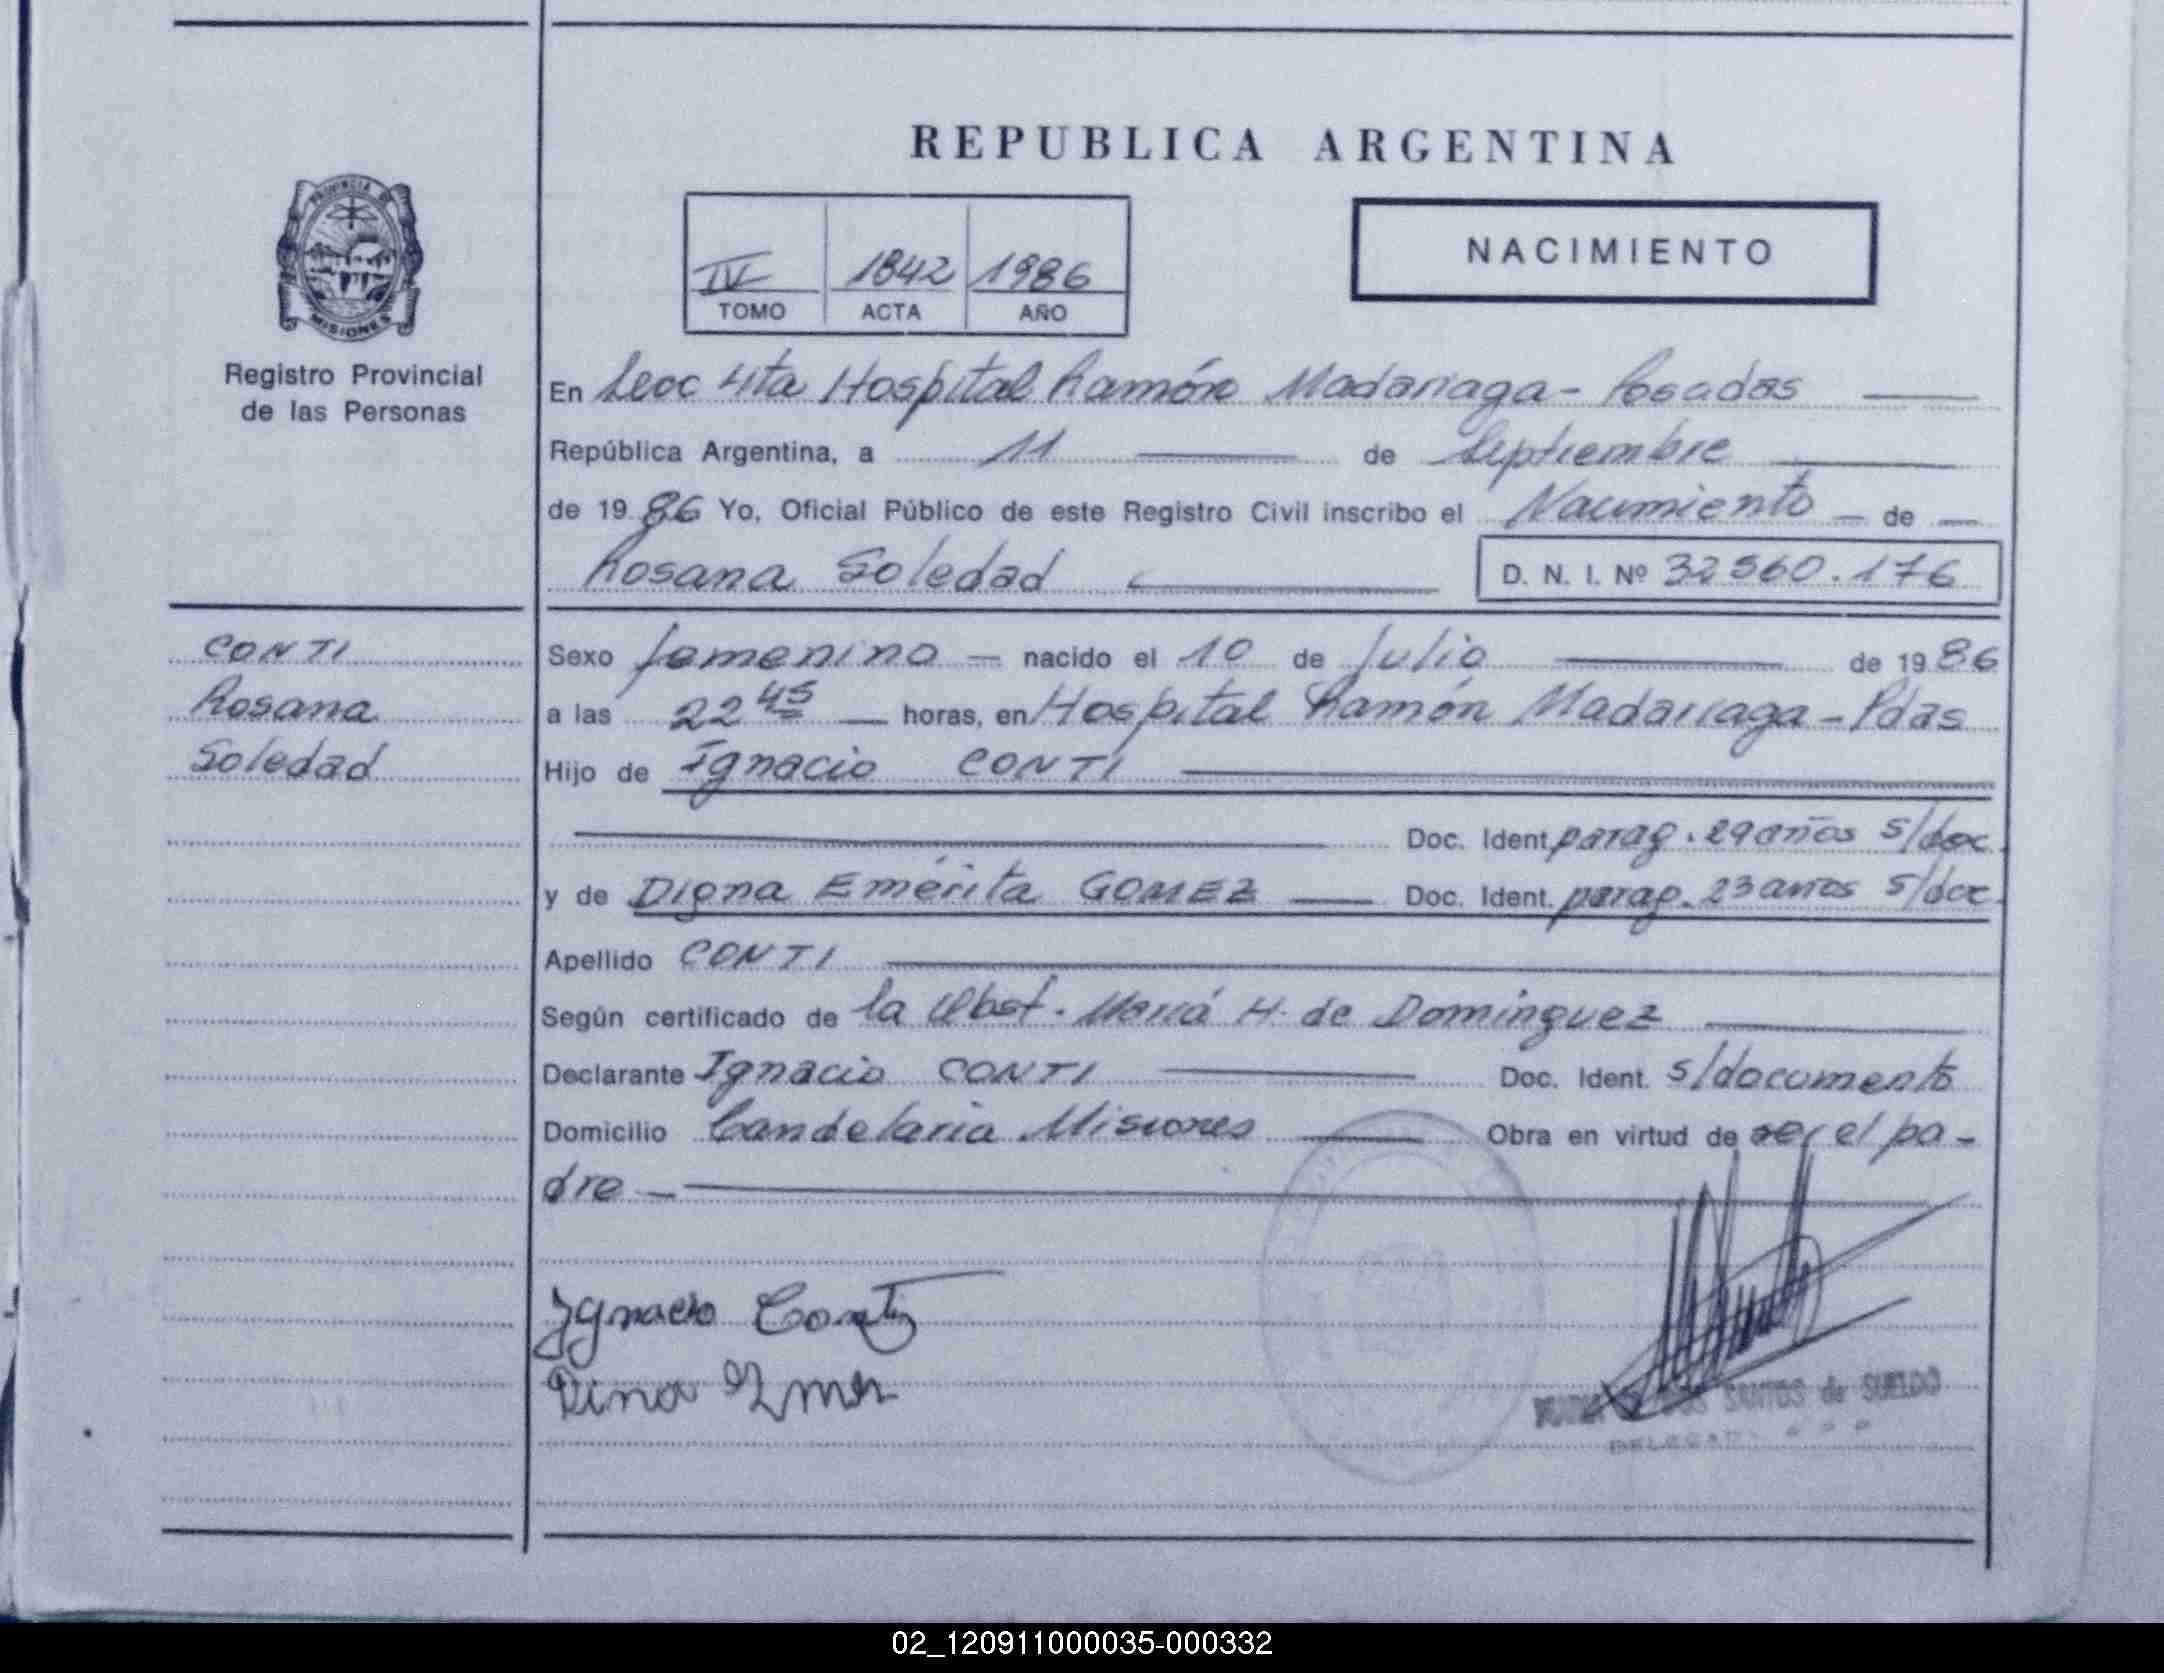 REPUBLICA ARGENTINA
PROVINCIA DE
MISIONES
Registro Provincial
de las Personas
IV 1842 1986
TOMO ACTA AÑO
NACIMIENTO
En Secc 4ta Hospital Ramón Madariaga - Posadas
República Argentina, a 11 de Septiembre
de 1986 Yo, Oficial Público de este Registro Civil inscribo el Nacimiento de
Rosana Soledad D. N. I. Nº 32560.176
CONTI
Rosana
Soledad
Sexo femenino nacido el 10 de Julio de 1986
a las 22 45 horas, en Hospital Ramón Madariaga - Pdas
Hijo de Ignacio CONTI
Doc. Ident. parag. 29 años s/doc.
y de Digna Emérita GOMEZ Doc. Ident. parag. 23 años s/doc.
Apellido CONTI
Según certificado de la Obst. María H. de Domínguez
Declarante Ignacio CONTI Doc. Ident. s/documento
Domicilio Candelaria Misiones Obra en virtud de ser el pa-
dre
Ignacio Conti
DOS SANTOS de SUELDO
02_120911000035-000332